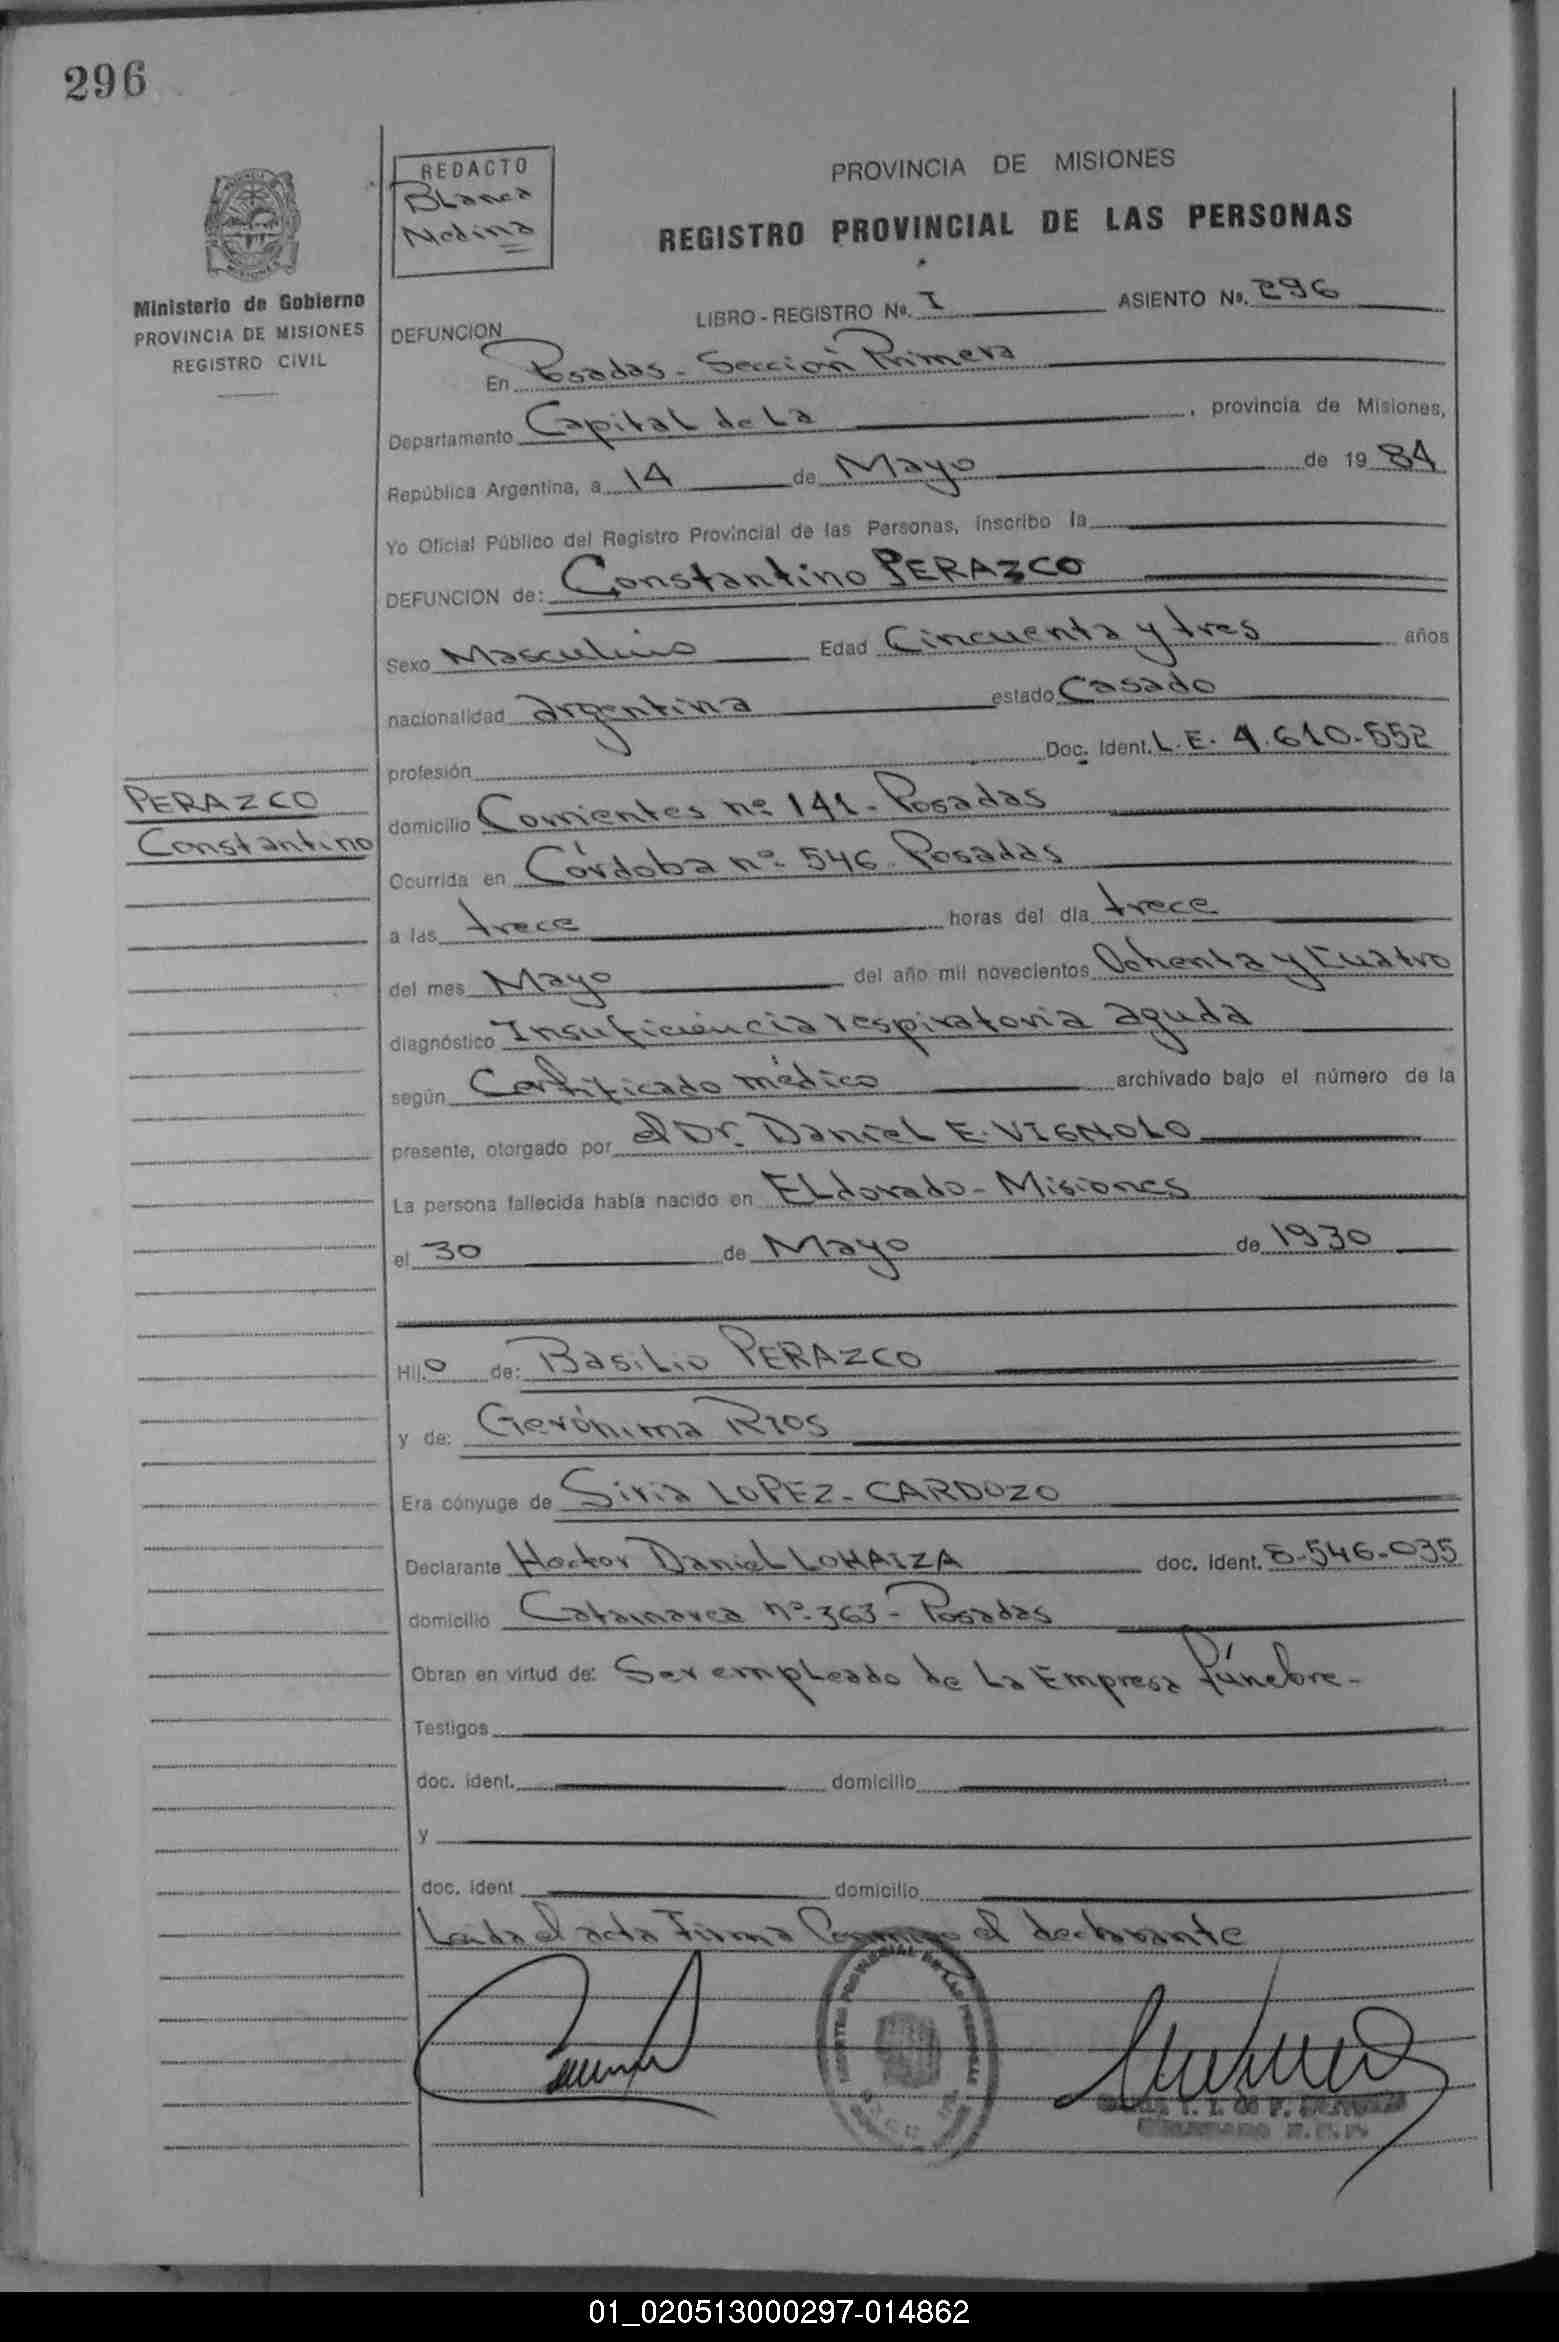 296
REDACTO
Blanca
Medina
PROVINCIA DE MISIONES
REGISTRO PROVINCIAL DE LAS PERSONAS
Ministerio de Gobierno
PROVINCIA DE MISIONES
REGISTRO CIVIL
LIBRO - REGISTRO No. I ASIENTO No. 296
DEFUNCION
En Posadas - Sección Primera
Departamento Capital de La , provincia de Misiones,
República Argentina, a 14 de Mayo de 19 84
Yo Oficial Público del Registro Provincial de las Personas, inscribo la
DEFUNCION de: Constantino PERAZCO
Sexo Masculino Edad Cincuenta y tres años
nacionalidad argentina estado Casado
profesión Doc. Ident. L.E. 4.610.552
PERAZCO
Constantino
domicilio Corrientes nº 141 - Posadas
Ocurrida en Córdoba nº 546 Posadas
a las trece horas del día trece
del mes Mayo del año mil novecientos Ochenta y Cuatro
diagnóstico Insuficiencia respiratoria aguda
según Certificado médico archivado bajo el número de la
presente, otorgado por el Dr. Daniel E. VIGNOLO
La persona fallecida había nacido en ELdorado - Misiones
el 30 de Mayo de 1930
Hij o de: Basilio PERAZCO
y de: Gerónima RIOS
Era cónyuge de Siria LOPEZ - CARDOZO
Declarante Hector Daniel LOHAIZA doc. ident. 8-546-035
domicilio Catamarca nº 363 - Posadas
Obran en virtud de: Ser empleado de La Empresa fúnebre -
Testigos
doc. ident. domicilio
y
doc. ident domicilio
Leida el acta Firma Conmigo el declarante
01_020513000297-014862